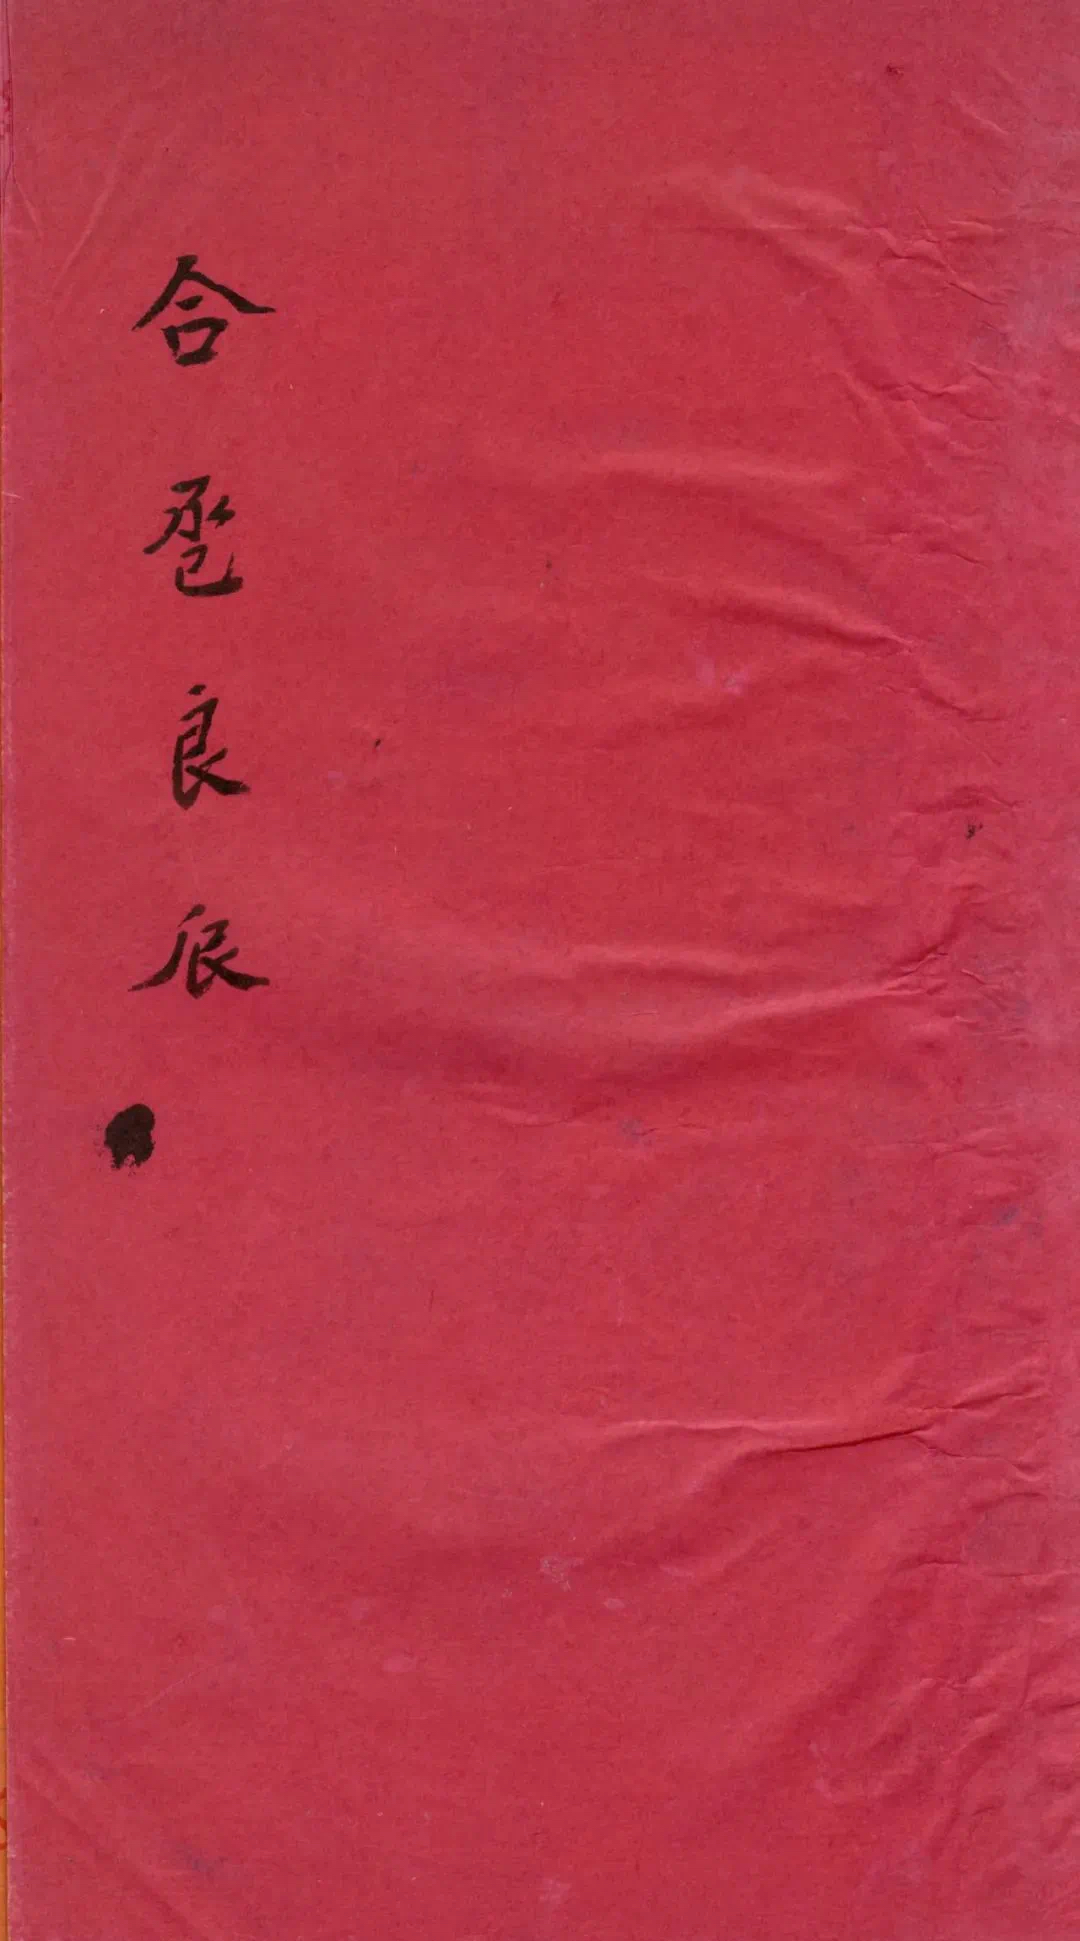 合卺良辰